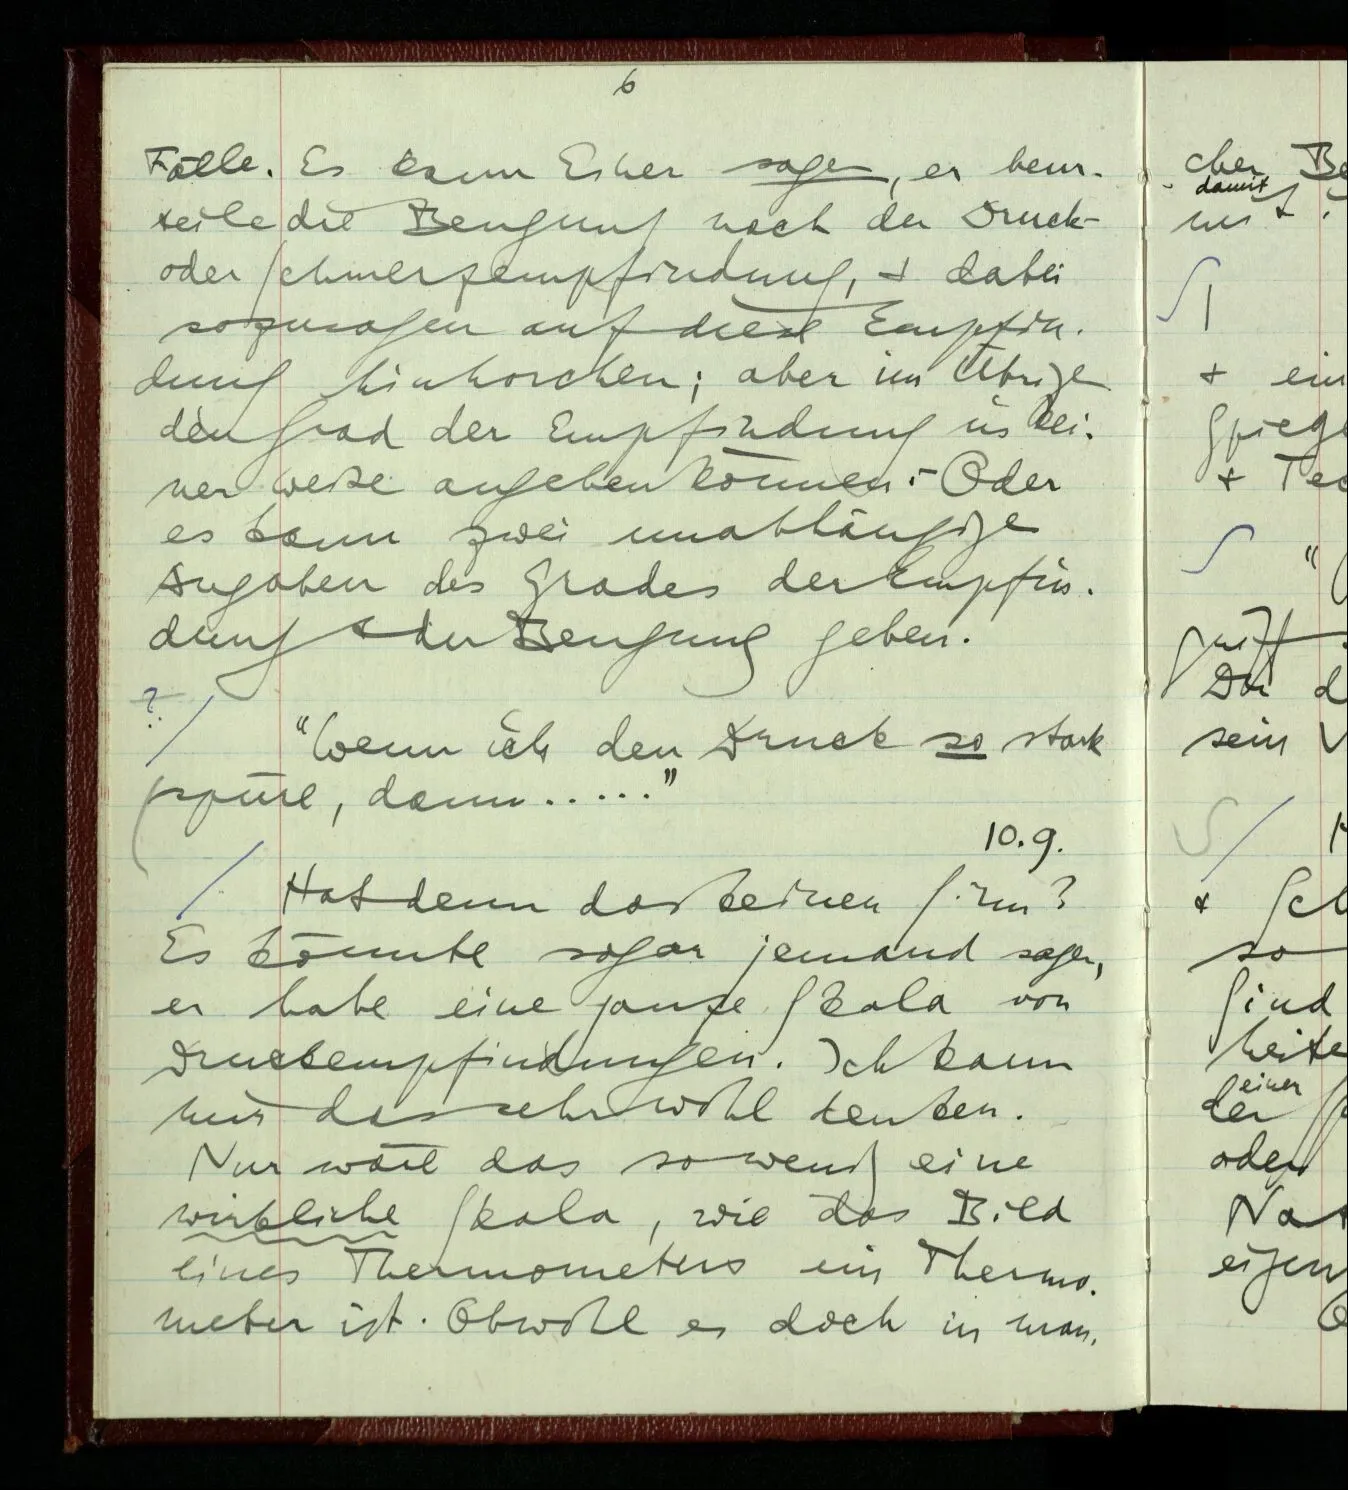 6
Fälle. Es kann Einer sagen, er beur-
teile die Beugung nach der Druck-
oder Schmerzempfindung, & dabei
sozusagen auf diese Empfin-
dung hinhorchen; aber im Übrigen
den Grad der Empfindung in kei-
ner Weise angeben können. – Oder
es kann zwei unabhängige
Angaben des Grades der Empfin-
dung & der Beugung geben.
? /
"Wenn ich den Druck so stark
spüre, dann....."
10.9.
/ Hat denn das keinen Sinn?
Es könnte sogar jemand sagen,
er habe eine ganze Skala von
Druckempfindungen. Ich kann
mir das sehr wohl denken.
Nur wäre das so wenig eine
wirkliche Skala, wie das Bild
eines Thermometers ein Thermo-
meter ist. Obwohl es doch in man-
cher Be
damit
mit
∫ |
& ein
Spiege
&
∫ "
Die d
sein V
∫ /
& Sch
so
sind
heite
einer
der
oder
Nat
eigen